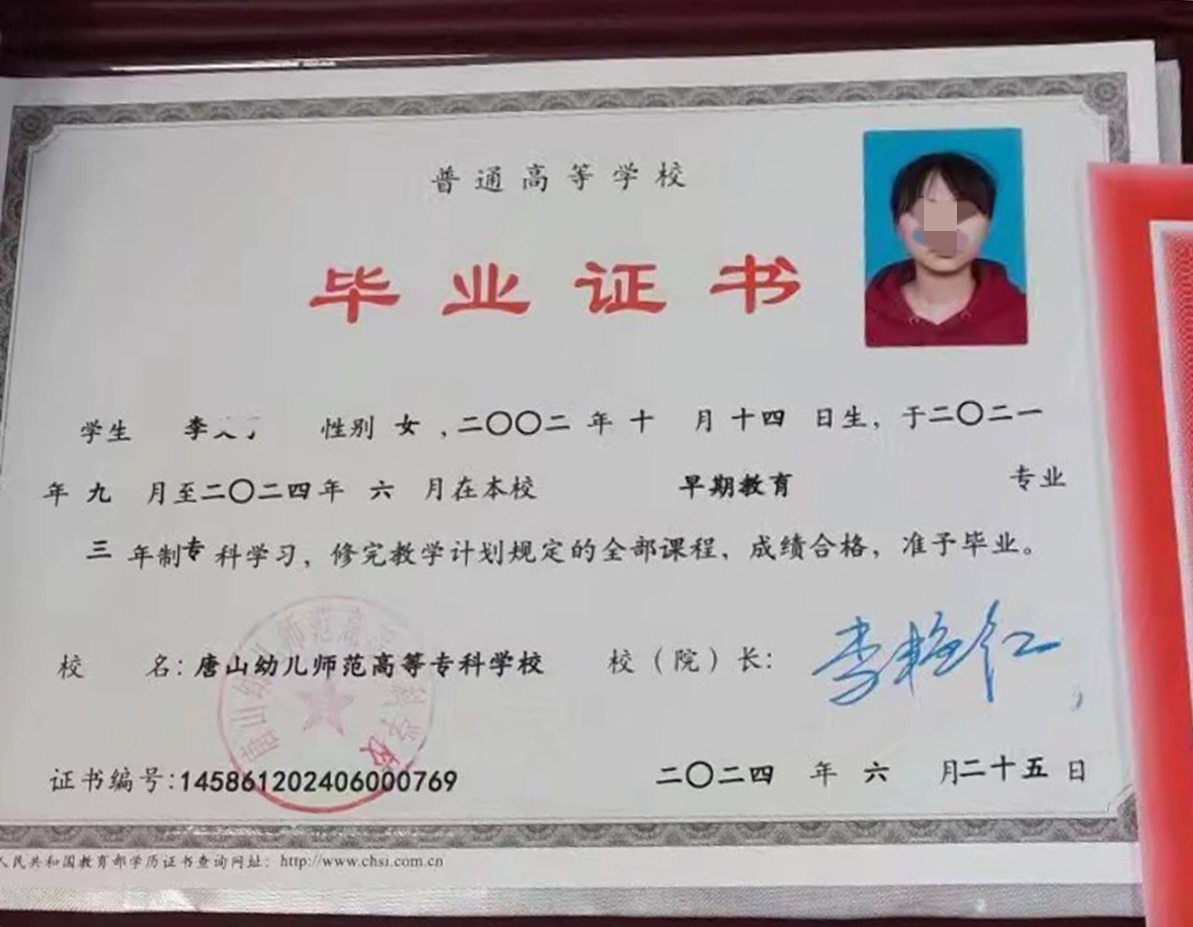 普通高等学校
毕业证书
学生 李 性别 女 ,二〇〇二 年 十 月 十四 日生，于二〇二一
年 九 月至二〇二四年 六 月在本校 早期教育 专业
三 年制专科学习，修完教学计划规定的全部课程，成绩合格，准予毕业。
校 名：唐山幼儿师范高等专科学校 校（院）长：李艳红
唐山幼儿师范高等专科学校
证书编号:145861202406000769 二〇二四 年 六 月二十五日
人民共和国教育部学历证书查询网址：http://www.chsi.com.cn